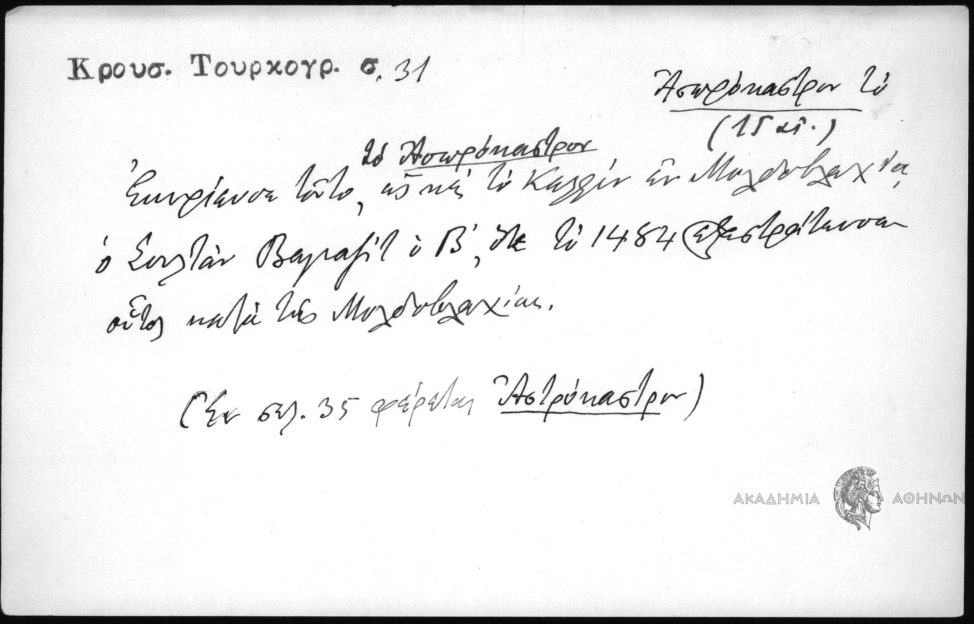 Κρουσ. Τουρκογρ. σ. 31
Ἀσπρόκαστρον τὸ
(15 αἰ.)
τὸ Ἀσπρόκαστρον
Ἐκυρίευσε τοῦτο, ὡς καὶ τὸ Κελλὶν ἐν Μολδοβλαχίᾳ
ὁ Σουλτὰν Βαγιαζὶτ ὁ Β', ὅτε τὸ 1484 ἐξεστράτευσεν
οὗτος κατὰ τῆς Μολδοβλαχίας.
(Ἐν σελ. 35 φέρεται Ἀστρόκαστρον)
ΑΚΑΔΗΜΙΑ ΑΘΗΝΩΝ